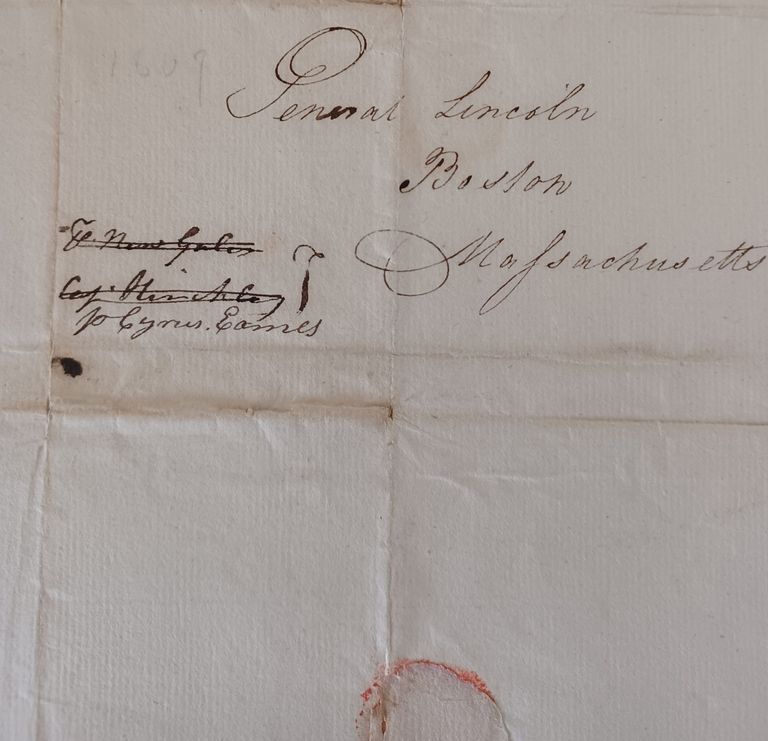 1809
General Lincoln
Boston
Massachusetts
Cap.
p Cyrus Eames